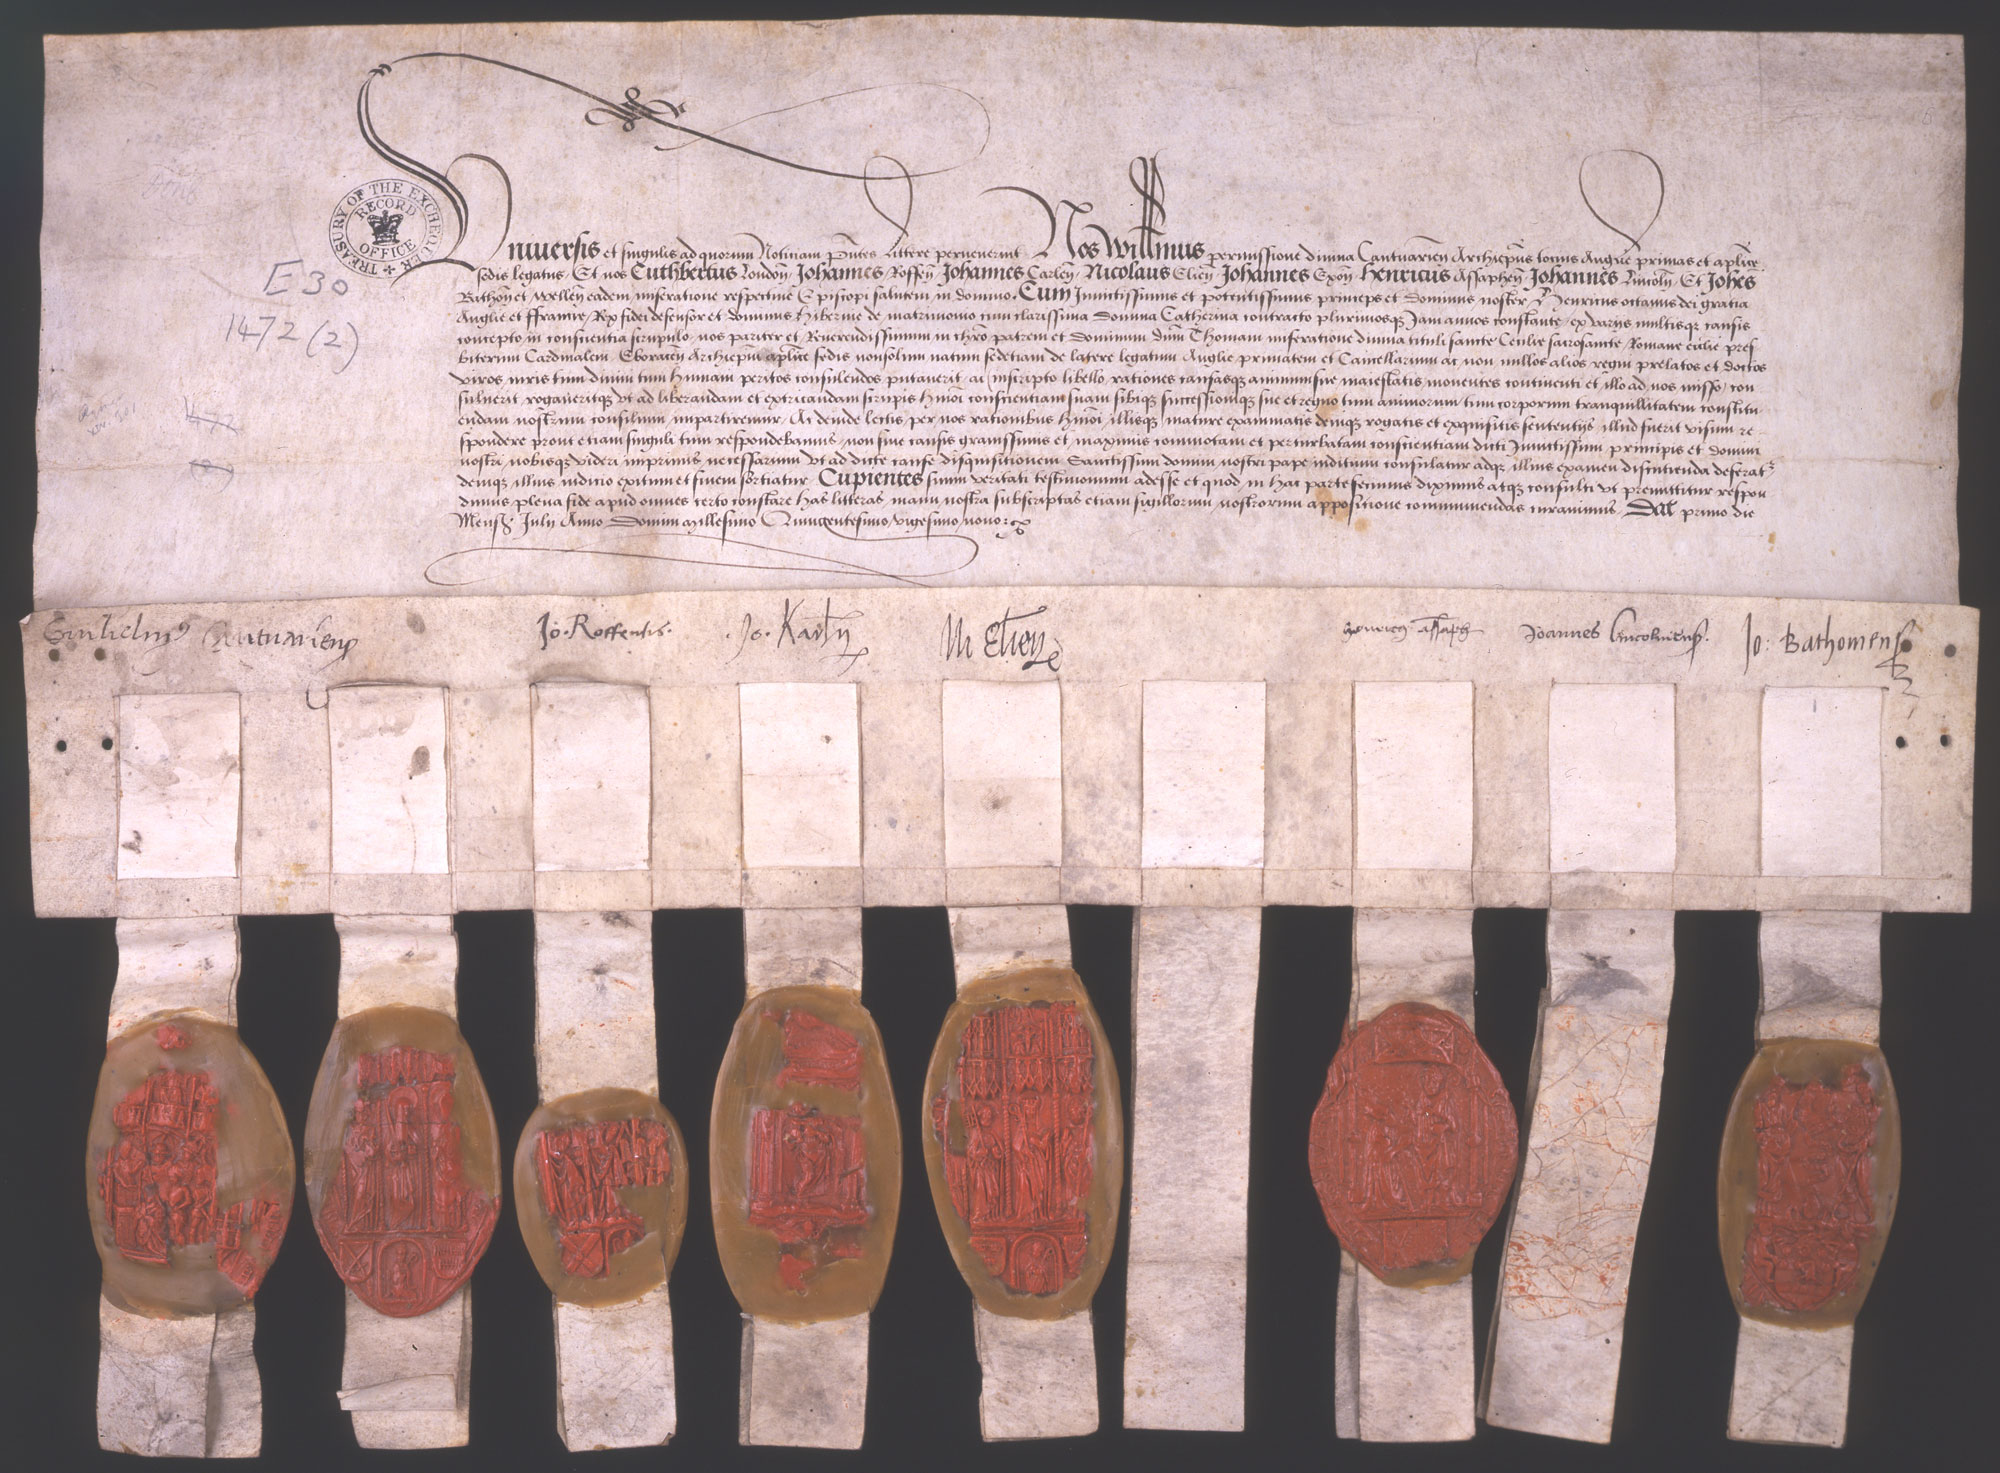 TREASURY OF THE EXCHEQUER
RECORD OFFICE
E 30
1472 (2)
Universis et singulis ad quorum Notitiam p̄ntes littere pervenerint Nos Willm̄us permissione divina Cantuarieñ Archiep̄us totius Anglie primas et aplice
sedis legatus Et nos Cuthbertus Londoñ Johannes Roffeñ Johannes Carleñ Nicolaus Elieñ Johannes Exoñ Henricus Assapheñ Johannes Lincolñ Et Joh̄es
Bathoñ et Welleñ eadem miseratione respective Episcopi salutem in domino. Cum Invictissimus et potentissimus princeps et dominus noster dn̄s Henricus octavus dei gratia
Anglie et ffrancie Rex fidei defensor et dominus Hibernie de matrimonio cum clarissima domina Catherina contracto plurimosqꝫ Jam annos constante ex varijs multisqꝫ causis
concepto in conscientia scrupulo nos pariter et Reverendissimum in chr̄o patrem et dominum dn̄m Thomam miseratione divina tituli sancte Cecilie sacrosancte Romane ecclie pres
biterum Cardinalem Eboraceñ Archiep̄m aplice sedis non solum natum sed etiam de latere legatum Anglie primatem et Cancellarium ac non nullos alios regni prelatos et doctos
viros iuris tum divini tum humani peritos consulendos putaverit ac inscripto libello rationes causasqꝫ animum sue maiestatis moventes continenti et illo ad nos misso con
suluerit rogaveritqꝫ ut ad liberandam et extricandam scrupis hm̄oi conscientiam suam sibiqꝫ successioniqꝫ sue et regno tum animorum tum corporum tranquillitatem constitu
endam nostrum consilium impartiremur Ac deinde lectis per nos rationibus hm̄oi illisqꝫ mature examinatis deinqꝫ rogatis et exquisitis sententijs illud fuerit visum re
spondere prout etiam singuli tum respondebamus non sine causis gravissimis et maximis commotam et perturbatam conscientiam dicti Invictissimi principis et domini
nostri nobisqꝫ videri imprimis necessarium ut ad dicte cause disquisitionem Sanctissimi domini nostri pape iuditium consulatur adqꝫ illius examen discutienda deferat͛
deinqꝫ illius iudicio exitum et finem sortiatur Cupientes sium veritati testimonium adesse et quod in hac parte fecimus diximus atqꝫ consulti ut premittitur respon
dimus plena fide apud omnes certo constare has litteras manu nostra subscriptas etiam sigillorum nostrorum appositione communiendas curavimus Dat̄ primo die
Mensis Julij Anno Domini Millesimo Quingentesimo vigesimo nono
Guilielmus Cantuarieñ
Jo. Roffensis.
Jo. Karliɫ
N Elieñ
Henricus Assaph
Joannes Lincolniens.
Jo: Bathoniens